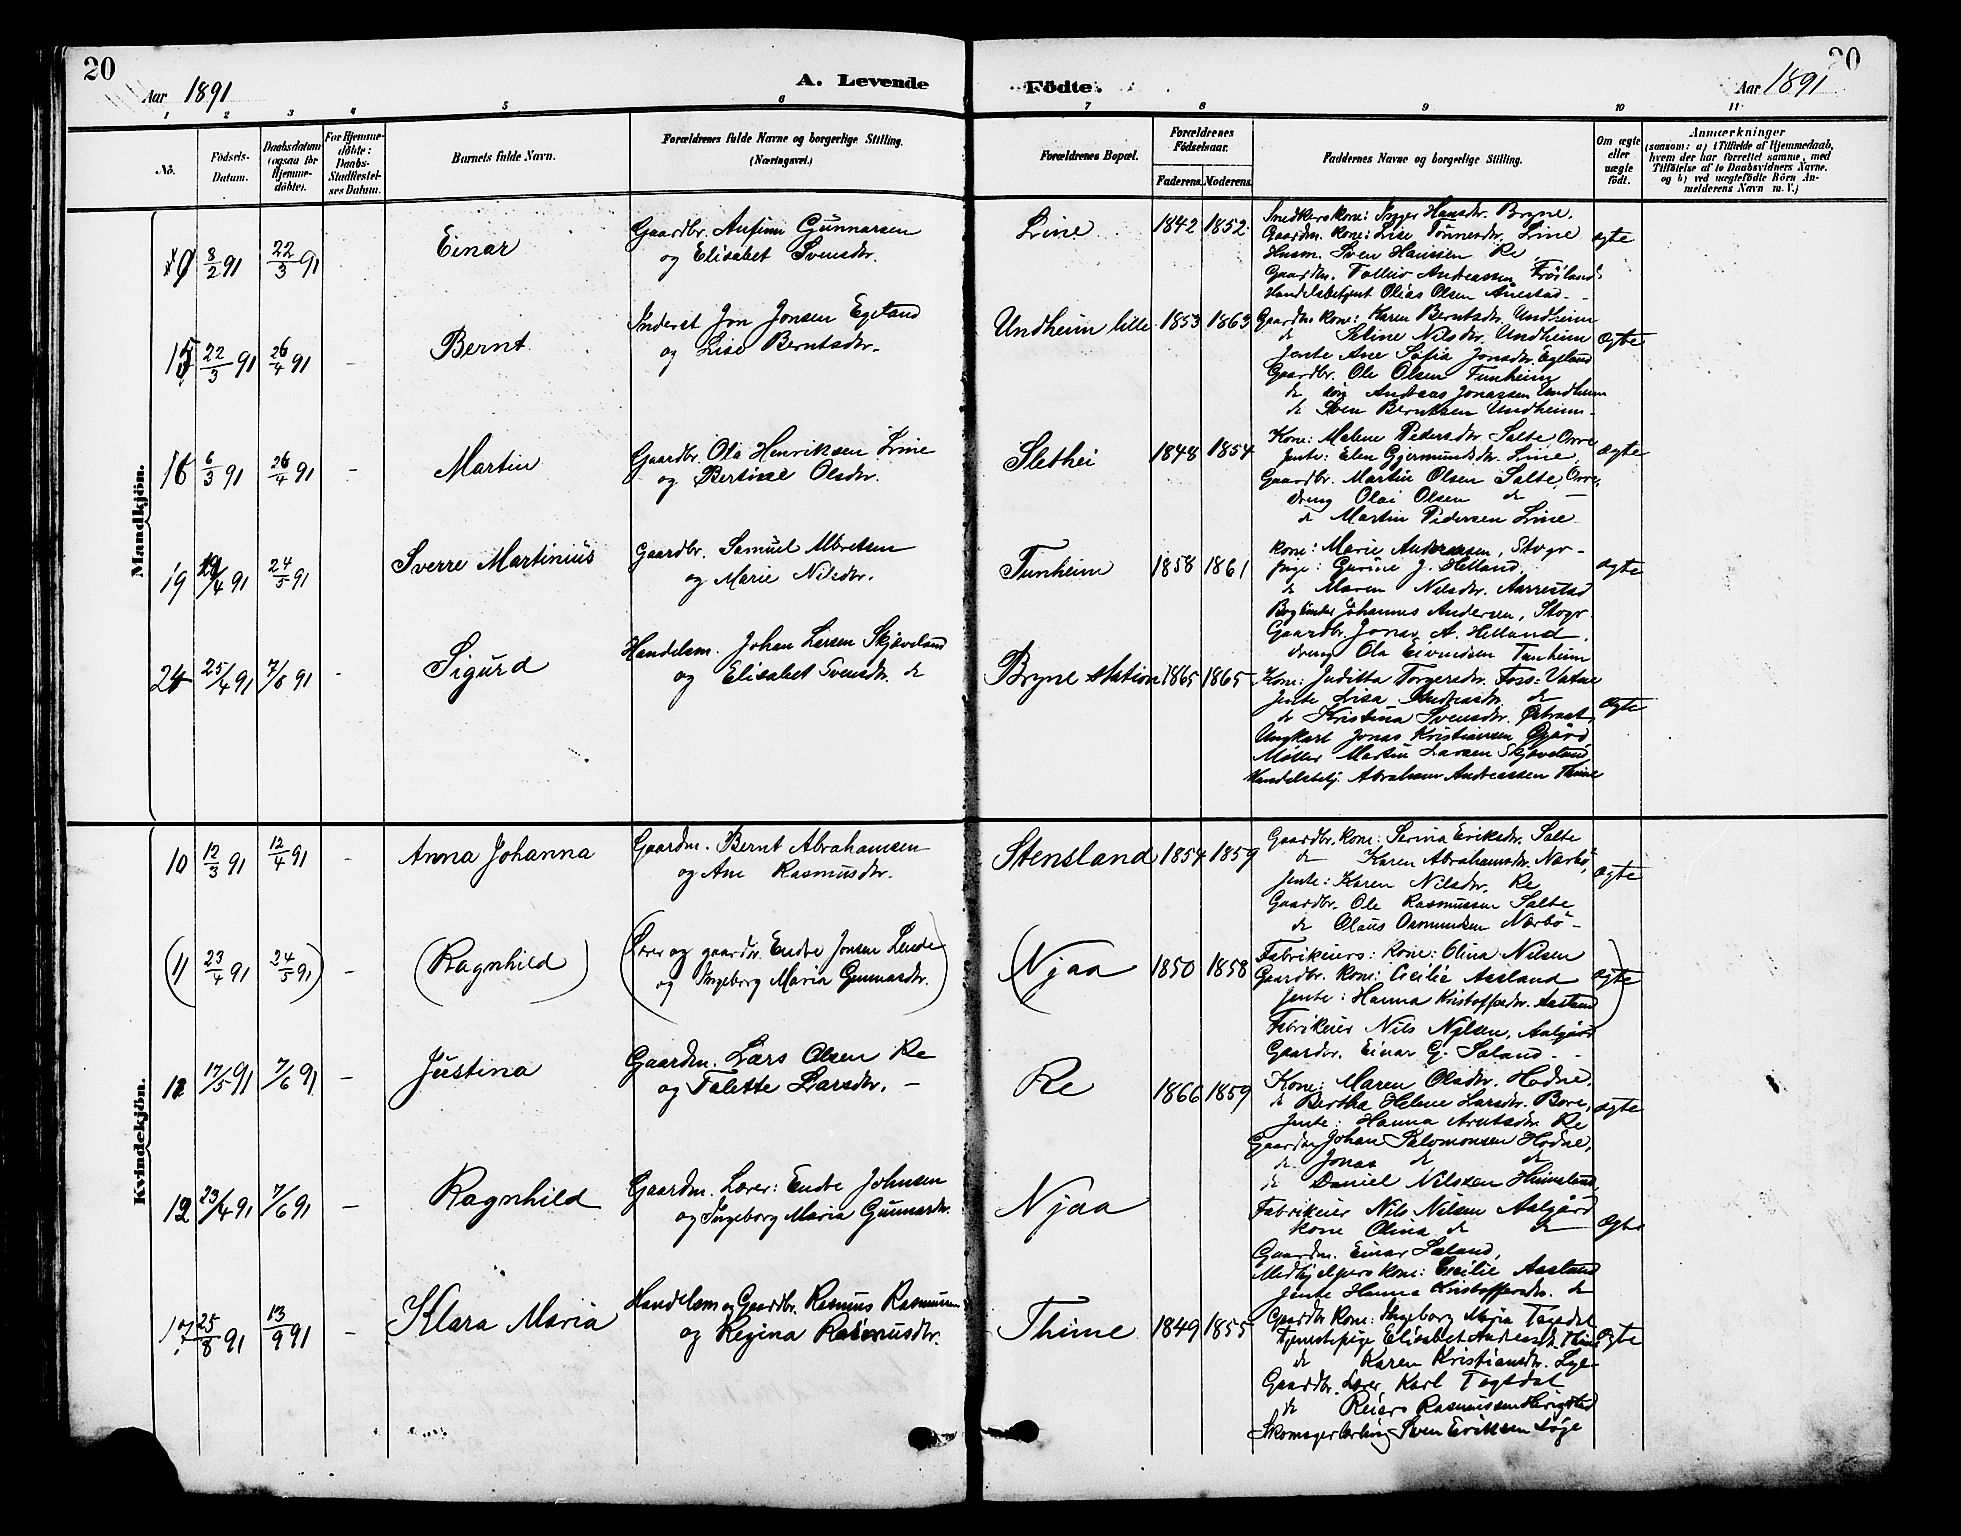 20
20
Aar 1891
A. Levende
Fødte.
Aar 1891
1 2 3 4 5 6 7 8 9 10 11
Nö.
Födsels-
Datum.
Daabsdatum
(ogsaa for
Hjemme-
døbte).
For Hjemme-
døbte:
Daabs-
Stadfæstel-
ses Datum.
Barnets fulde Navn.
Forældrenes fulde Navne og borgerlige Stilling.
(Næringsvei.)
Forældrenes Bopæl.
Forældrenes
Födselsaar.
Faderens. Moderens.
Faddernes Navne og borgerlige Stilling.
Om ægte
eller
uægte
født.
Anmærkninger
(saasom: a) i Tilfælde af Hjemmedaab,
hvem der har forrettet samme, med
Tilføielse af to Daabsvidners Navne,
og b) ved uægtefødte Börn An-
melderens Navn m. V.)
Mandkjön.
8/2 91 22/3 91 -
Einar
Gaardbr. Anfinn Gunnarsen
og Elisabet Svensdtr.
Line 1842 1852
Snedkerskone: Inger Hansdtr. Bryne.
Gaardm. kone: Lise Tönnesdtr. Line
Husm. Sven Hansen Re
Gaardbr. Tollev Andreassen Fröiland
Handelsbetjent Olias Olsen Anestad
ægte
15 22/3 91 26/4 91 -
Bernt
Inderst Jon Jonsen Egeland
og Lise Berntsdtr.
Undheim lille 1853 1863
Gaardbr. kone: Karen Berntsdtr. Undheim
do Seline Nilsdtr. Undheim
Jente Ane Sofia Jonsdtr. Egeland
Gaardbr. Ole Olsen Tunheim
do Andreas Jonassen Undheim
do Sven Berntsen Undheim
Ægte
16 6/3 91 26/4 91 -
Martin
Gaardbr. Ola Henriksen Line
og Bertine Olsdtr.
Slethei 1848 1854
Kone: Malene Pedersdtr. Salte, Orre
Jente: Elen Gjermundsdtr. Line
Gaardbr. Martin Olsen Salte, Orre,
dreng Olai Olsen do —
do Martin Pedersen Line
ægte
19 19/4 91 24/5 91
Sverre Martinius
Gaardbr. Samuel Albretsen
og Marie Nilsdtr.
Tunheim 1858 1861
kone: Marie Andersen, Stvgr -
pige: Gurine J. Helland,
do Maren Nilsdtr. Aarrestad
Bogbinder Johannes Andersen, Stvgr
Gaardbr. Jonas A. Helland,
dreng Ola Eivindsen Tunheim
ægte
25/4 91 7/6 91 -
Sigurd
Handelsm. Johan Larsen Skjæveland
og Elisabet Svensdtr. do
Bryne station 1865 1865
Kone: Juditta Torgersdtr. Foss-Vatne
Jente Lisa Andreasdtr do
do Kristina Svensdtr. Østraat,
Ungkarl Jonas Kristiansen
Møller Martin Larsen Skjæveland
Handelsbetj. Abraham Andreassen Thime
ægte
Kvindekjön.
10 12/3 91 12/4 91 -
Anna Johanna
Gaardm. Bernt Abrahamsen
og Ane Rasmusdtr.
Stensland 1854 1859
Gaardbr. kone: Serina Eriksdtr. Salte
do Karen Abrahamsdtr. Nærbö,
Jente: Karen Nilsdtr. Re
Gaardbr. Ole Rasmussen Salte
do Olaus Osmundsen Nærbö -
ægte
(11 23/4 91 24/5 91) -
(Ragnhild)
(Lærer og gaardbr. Endre Jonsen Lende
og Ingeborg Maria Gunnarsdtr.)
(Njaa 1850 1858
Fabrikeiers: Kone: Olina Nilsen
Gaardbr. Kone: Cecilie Aasland
Jente: Hanna Kristoffersdtr. Aasland
Fabrikeier Nils Nilsen, Aalgård
Gaardbr. Einar G. Saland -
ægte)
17/5 91 7/6 91 -
Justina
Gaardm. Lars Olsen Re
og Talette Larsdtr. -
Re 1866 1859
Kone: Maren Olsdtr. Hodne.
do Bertha Helene Larsdtr. Bore,
Jente: Hanna Arntsdtr. Re
Gaardbr. Johan Salomonsen Hodne,
do Jonas do do
do Daniel Nilssen
ægte
12 23/4 91 7/6 91 -
Ragnhild
Gaardm. Lærer: Endre Johnsen
og Ingeborg Maria Gunnarsdtr.
Njaa
Fabrikeier Nils Nilsen Aalgård
kone Olina do do
Gaardm. Einar Saland,
Medhjelpers kone: Cecilie Aasland
Jente Hanna Kristoffersdtr. do
Ægte
17 25/8 91 13/9 91 -
Klara Maria
Handelsm og Gaardbr. Rasmus Rasmussen
og Regina Rasmusdtr.
Thime 1849 1855
Gaardbr Kone: Ingeborg Marja Tægdal
Tjenestepige Elisabet Andreasdtr. Thime
do Karen Kristiansdtr. Lye
Gaardbr. Lærer Karl Tægdal
do Reiers Rasmussen Herigstad
Skomagerlærling Sven Eriksen Löge
ægte